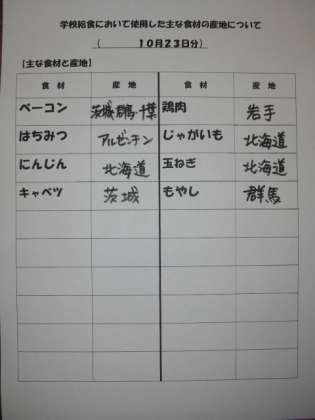 学校給食において使用した主な食材の産地について
( 10月23日分)
【主な食材と産地】
食材 産地 食材 産地
ベーコン 茨城・群馬・千葉 鶏肉 岩手
はちみつ アルゼンチン じゃがいも 北海道
にんじん 北海道 玉ねぎ 北海道
キャベツ 茨城 もやし 群馬